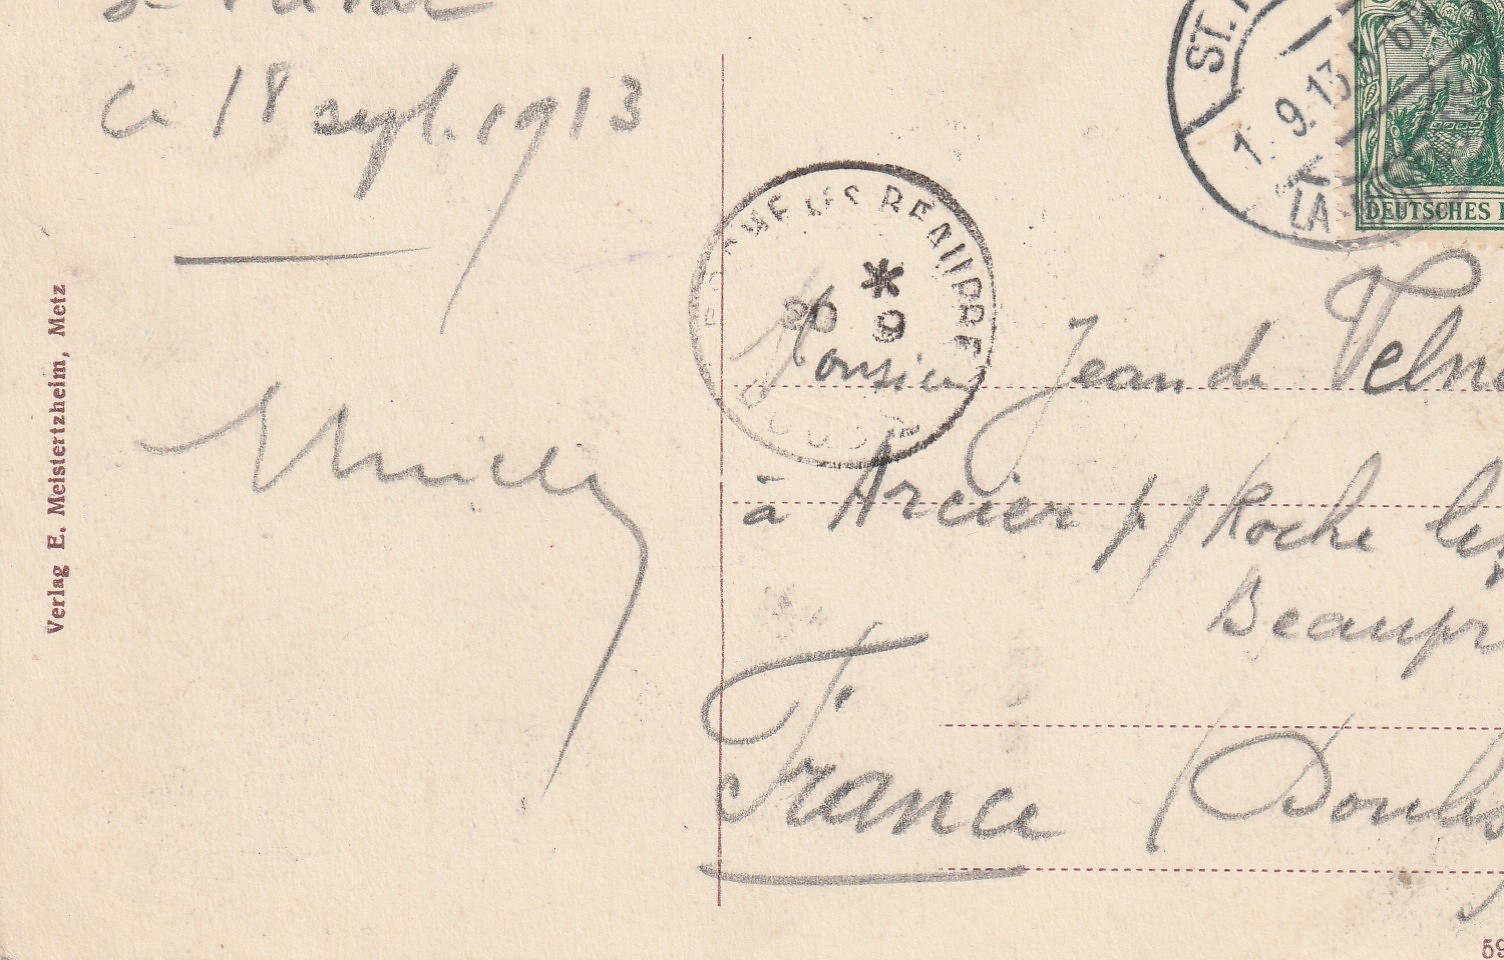 St Privat
ce 18 sept. 1913
Verlag E. Meistertzheim, Metz
ST. P
1. 9. 13
LA
DEUTSCHES
ROCHE LES BEAUPRE
* 9
DOUBS
Monsieur Jean de
à Arcier p/ Roche les
Beaupr
France (Doubs
59